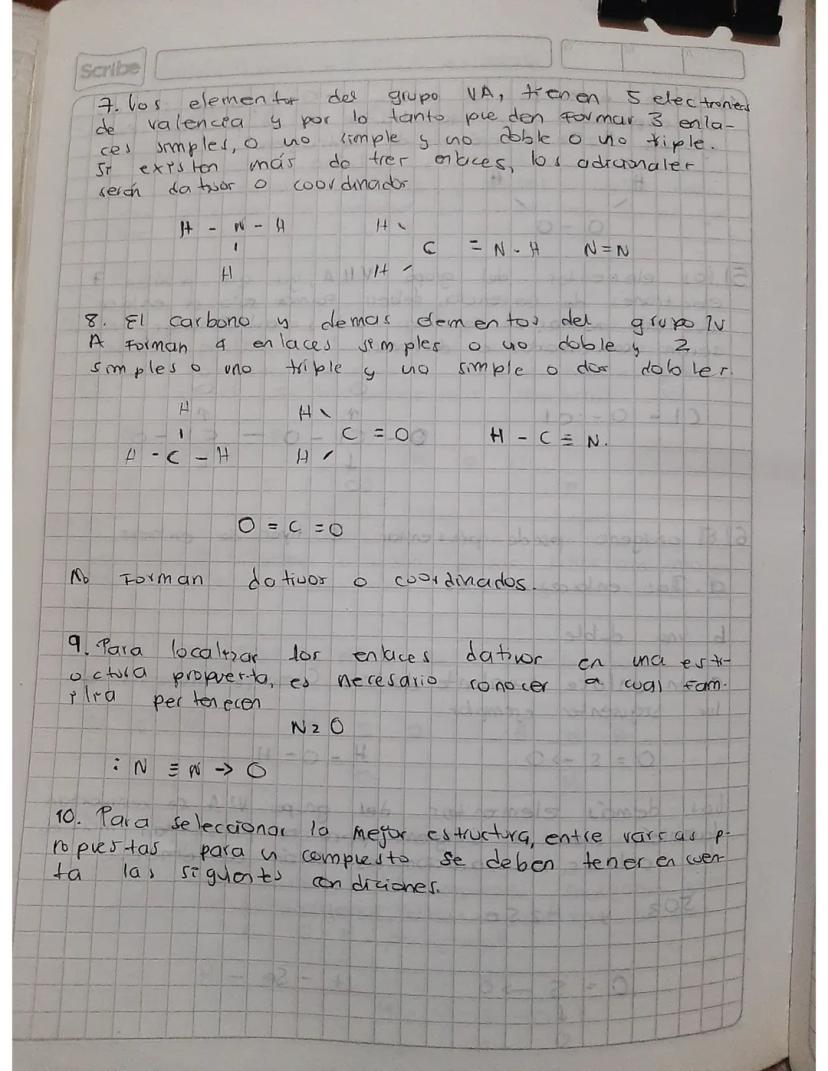 Scribe
7. Los elementor del grupo VA, tienen 5 electrones
de valencia y por lo tanto pue den formar 3 enla-
ces simples, o uno simple y uno doble o uno triple.
Si existen más de trer enlaces, los adicionaler
serán da tivor o coordinador
H - N - H
H
H
C = N - H
H
N = N
8. El carbono y demas elementos del grupo IV
A Forman 4 enlaces simples o uno doble y 2
simples o uno triple y uno simple o dos dobler.
H
H - C - H
H
C = O
H
H - C ≡ N.
O = C = O
No Forman dativor o coordinados.
9. Para localizar lor enlaces dativor en una estr-
uctura propuerta, es necesario conocer a cual fam-
ilia pertenecen
N2O
: N ≡ N → O
10. Para seleccionar la mejor estructura, entre varias p-
ropuestas para un compuesto se deben tener en cuen-
ta las siguientes condiciones.